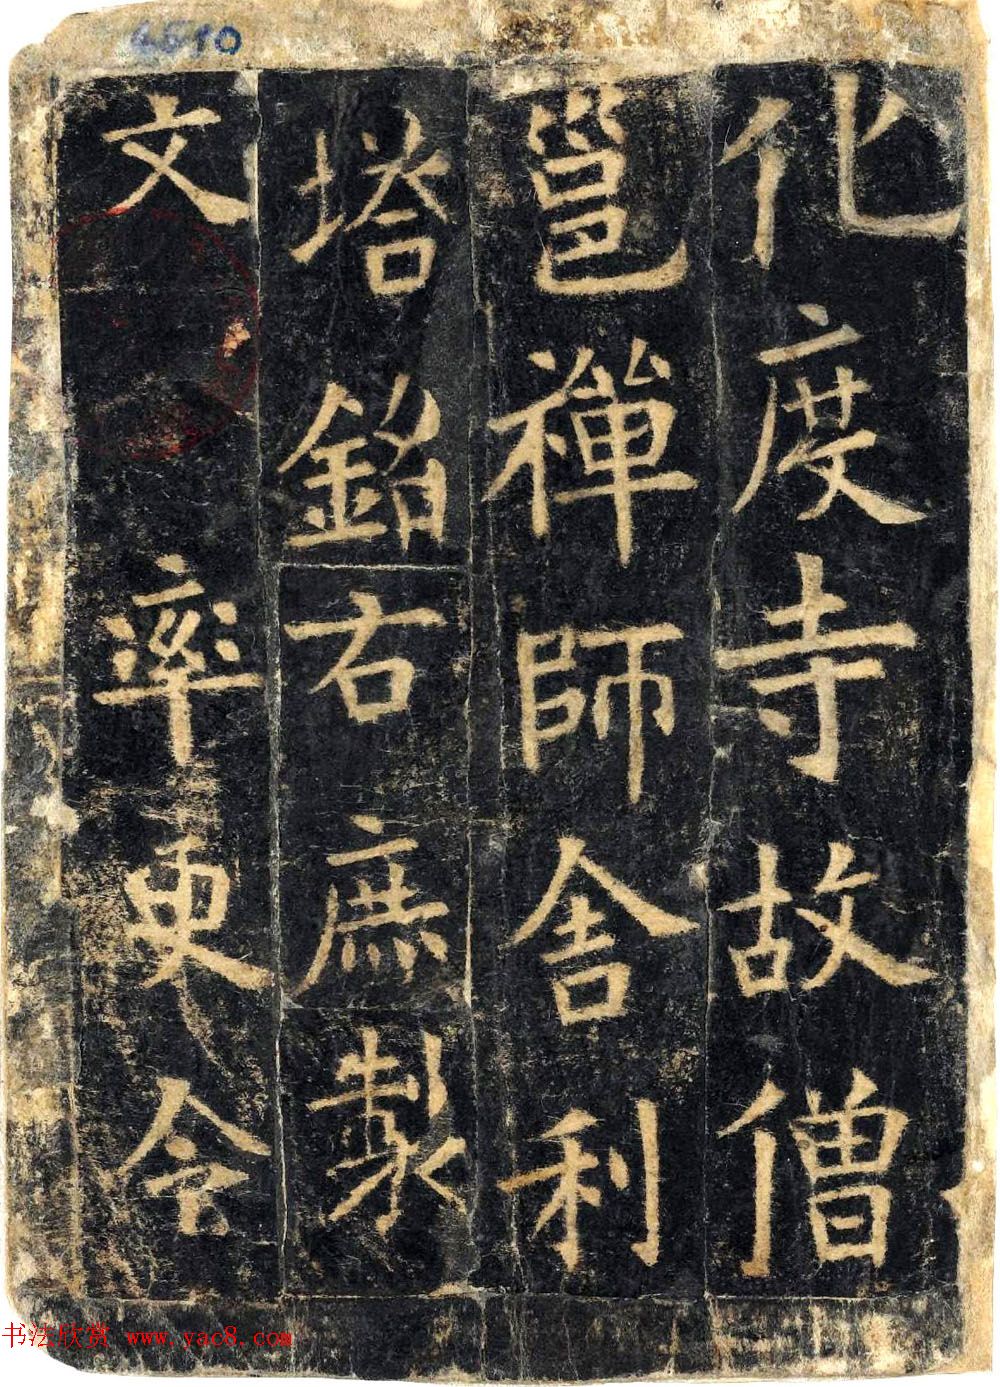 化度寺故僧
邕禪師舎利
塔銘右庶製
文 率更令
4510
书法欣赏 www.yac8.com